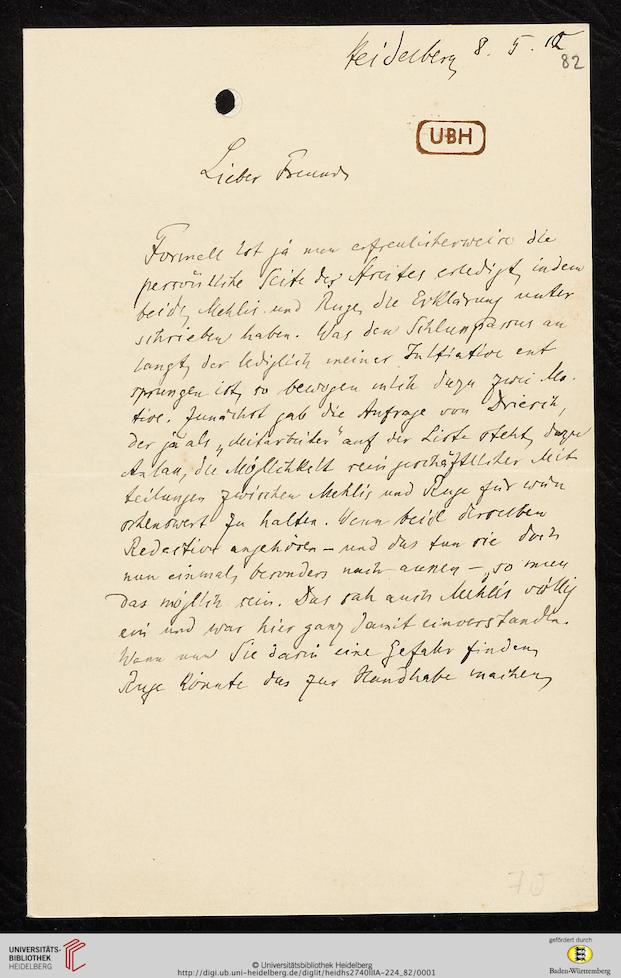 Heidelberg 8. 5. 10
82
UBH
Lieber Freund,
Formell ist ja nun erfreulicherweise die
persönliche Seite des Streites erledigt, indem
beide, Mehlis und Ruge, die Erklärung unter
schrieben haben. Was den Schlusspassus an
langt, der lediglich meiner Initiative ent
sprungen ist, so bewogen mich dazu zwei Mo-
tive. Zunächst gab die Anfrage von Driesch,
der ja als „Mitarbeiter" auf der Liste steht, dazu
Anlass, die Möglichkeit rein geschäftlicher Mit
teilungen zwischen Mehlis und Ruge für wün
schenswert zu halten. Wenn beide derselben
Redaction angehören – und das tun sie doch
nun einmal, besonders nach aussen –, so muss
das möglich sein. Das sah auch Mehlis völlig
ein und war hier ganz damit einverstanden.
Wenn nun Sie darin eine Gefahr finden,
Ruge könnte das zur Handhabe machen,
UNIVERSITÄTS-
BIBLIOTHEK
HEIDELBERG
© Universitätsbibliothek Heidelberg
http://digi.ub.uni-heidelberg.de/diglit/heidhs2740IIIA-224_82/0001
gefördert durch
Baden-Württemberg